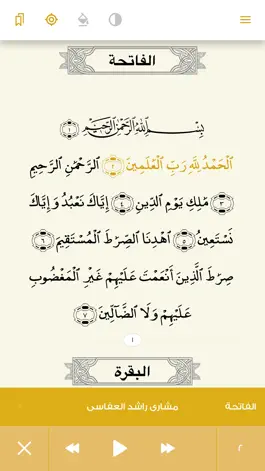 الفاتحة
بِسْمِ اللَّهِ الرَّحْمَٰنِ الرَّحِيمِ ١
الْحَمْدُ لِلَّهِ رَبِّ الْعَٰلَمِينَ ٢ الرَّحْمَٰنِ الرَّحِيمِ
٣ مَٰلِكِ يَوْمِ الدِّينِ ٤ إِيَّاكَ نَعْبُدُ وَإِيَّاكَ
نَسْتَعِينُ ٥ اهْدِنَا الصِّرَٰطَ الْمُسْتَقِيمَ ٦
صِرَٰطَ الَّذِينَ أَنْعَمْتَ عَلَيْهِمْ غَيْرِ الْمَغْضُوبِ
عَلَيْهِمْ وَلَا الضَّآلِّينَ ٧
١
البقرة
الفاتحة مشاري راشد العفاسي
٢